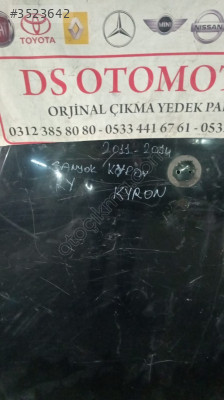 #3523642
TOYOTA
MINI
NISSAN
DS OTOMOT
ORJİNAL ÇIKMA YEDEK PA
0312 385 80 80 - 0533 441 67 61 - 053
2011 - 2014
KYRON
KYRON